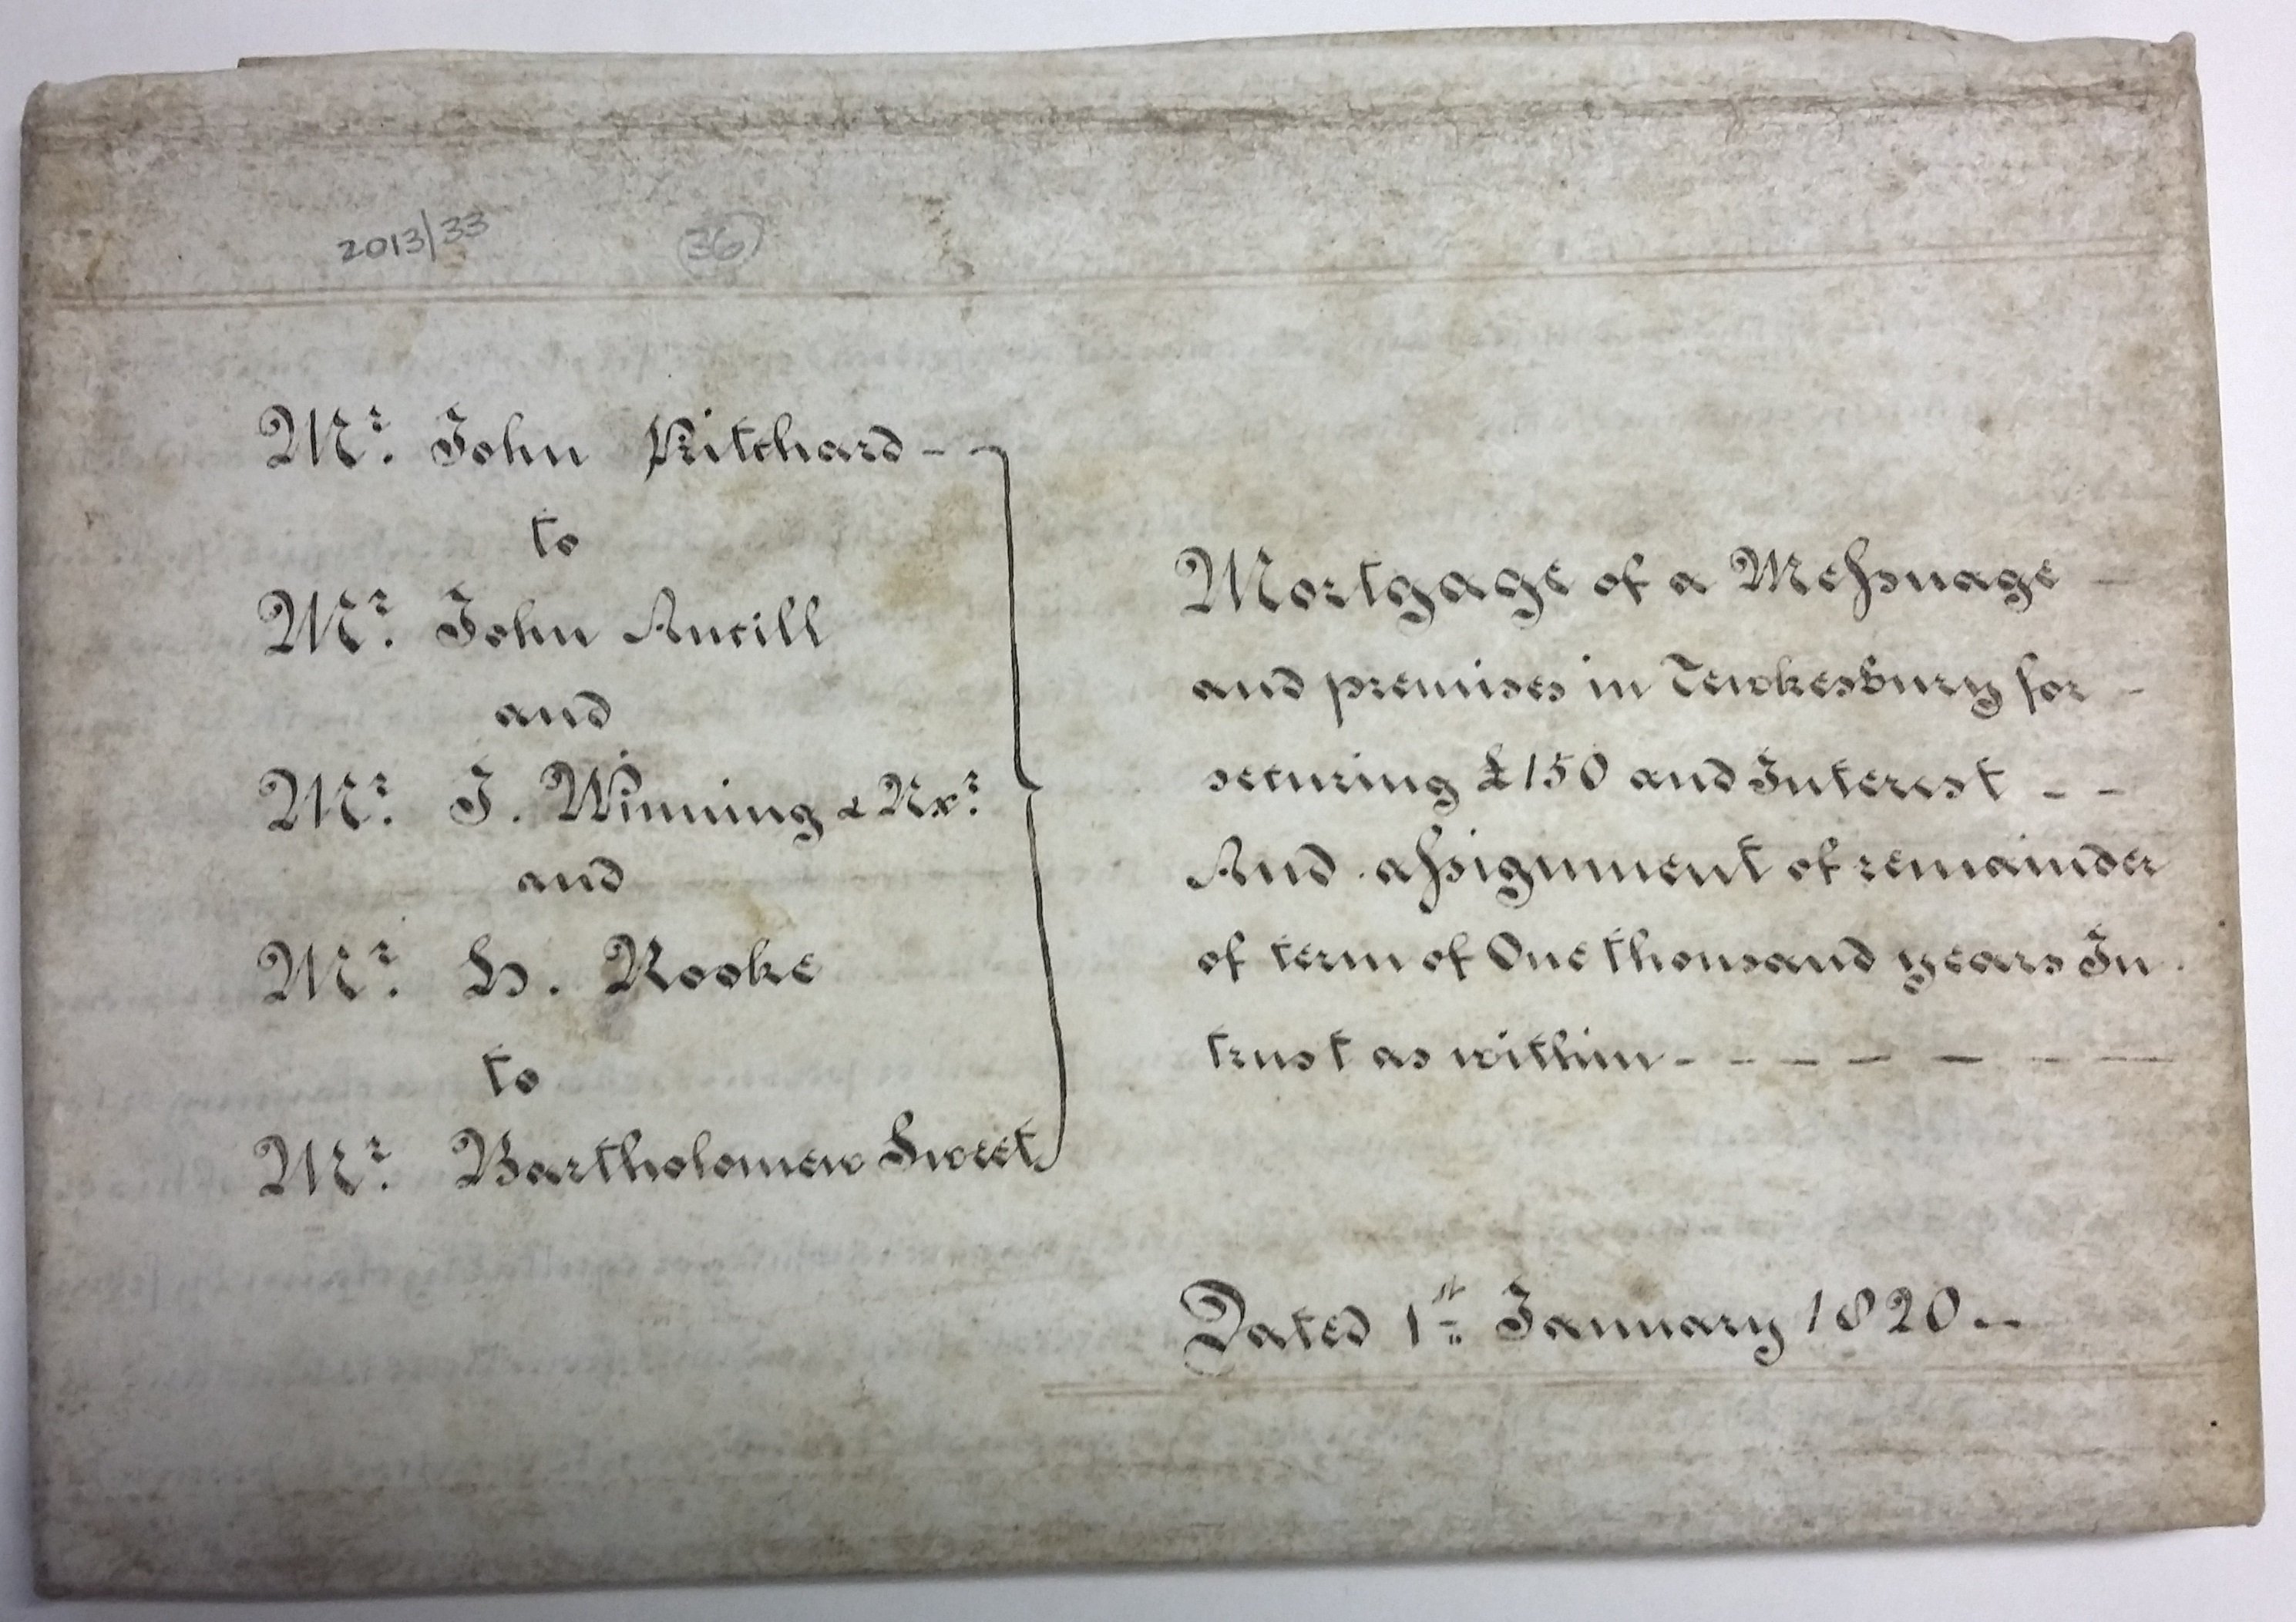 2013/33 36
Mr. John Pritchard - -
to
Mr. John Ancill
and
Mr. J. Winning & Uxr.
and
Mr. H. Rooke
to
Mr. Bartholomew Sweet
Mortgage of a Messuage -
and premises in Tewkesbury for -
securing £150 and Interest - -
And assignment of remainder
of term of One thousand years In
trust as within - - - - - - - -
Dated 1st January 1820 . -